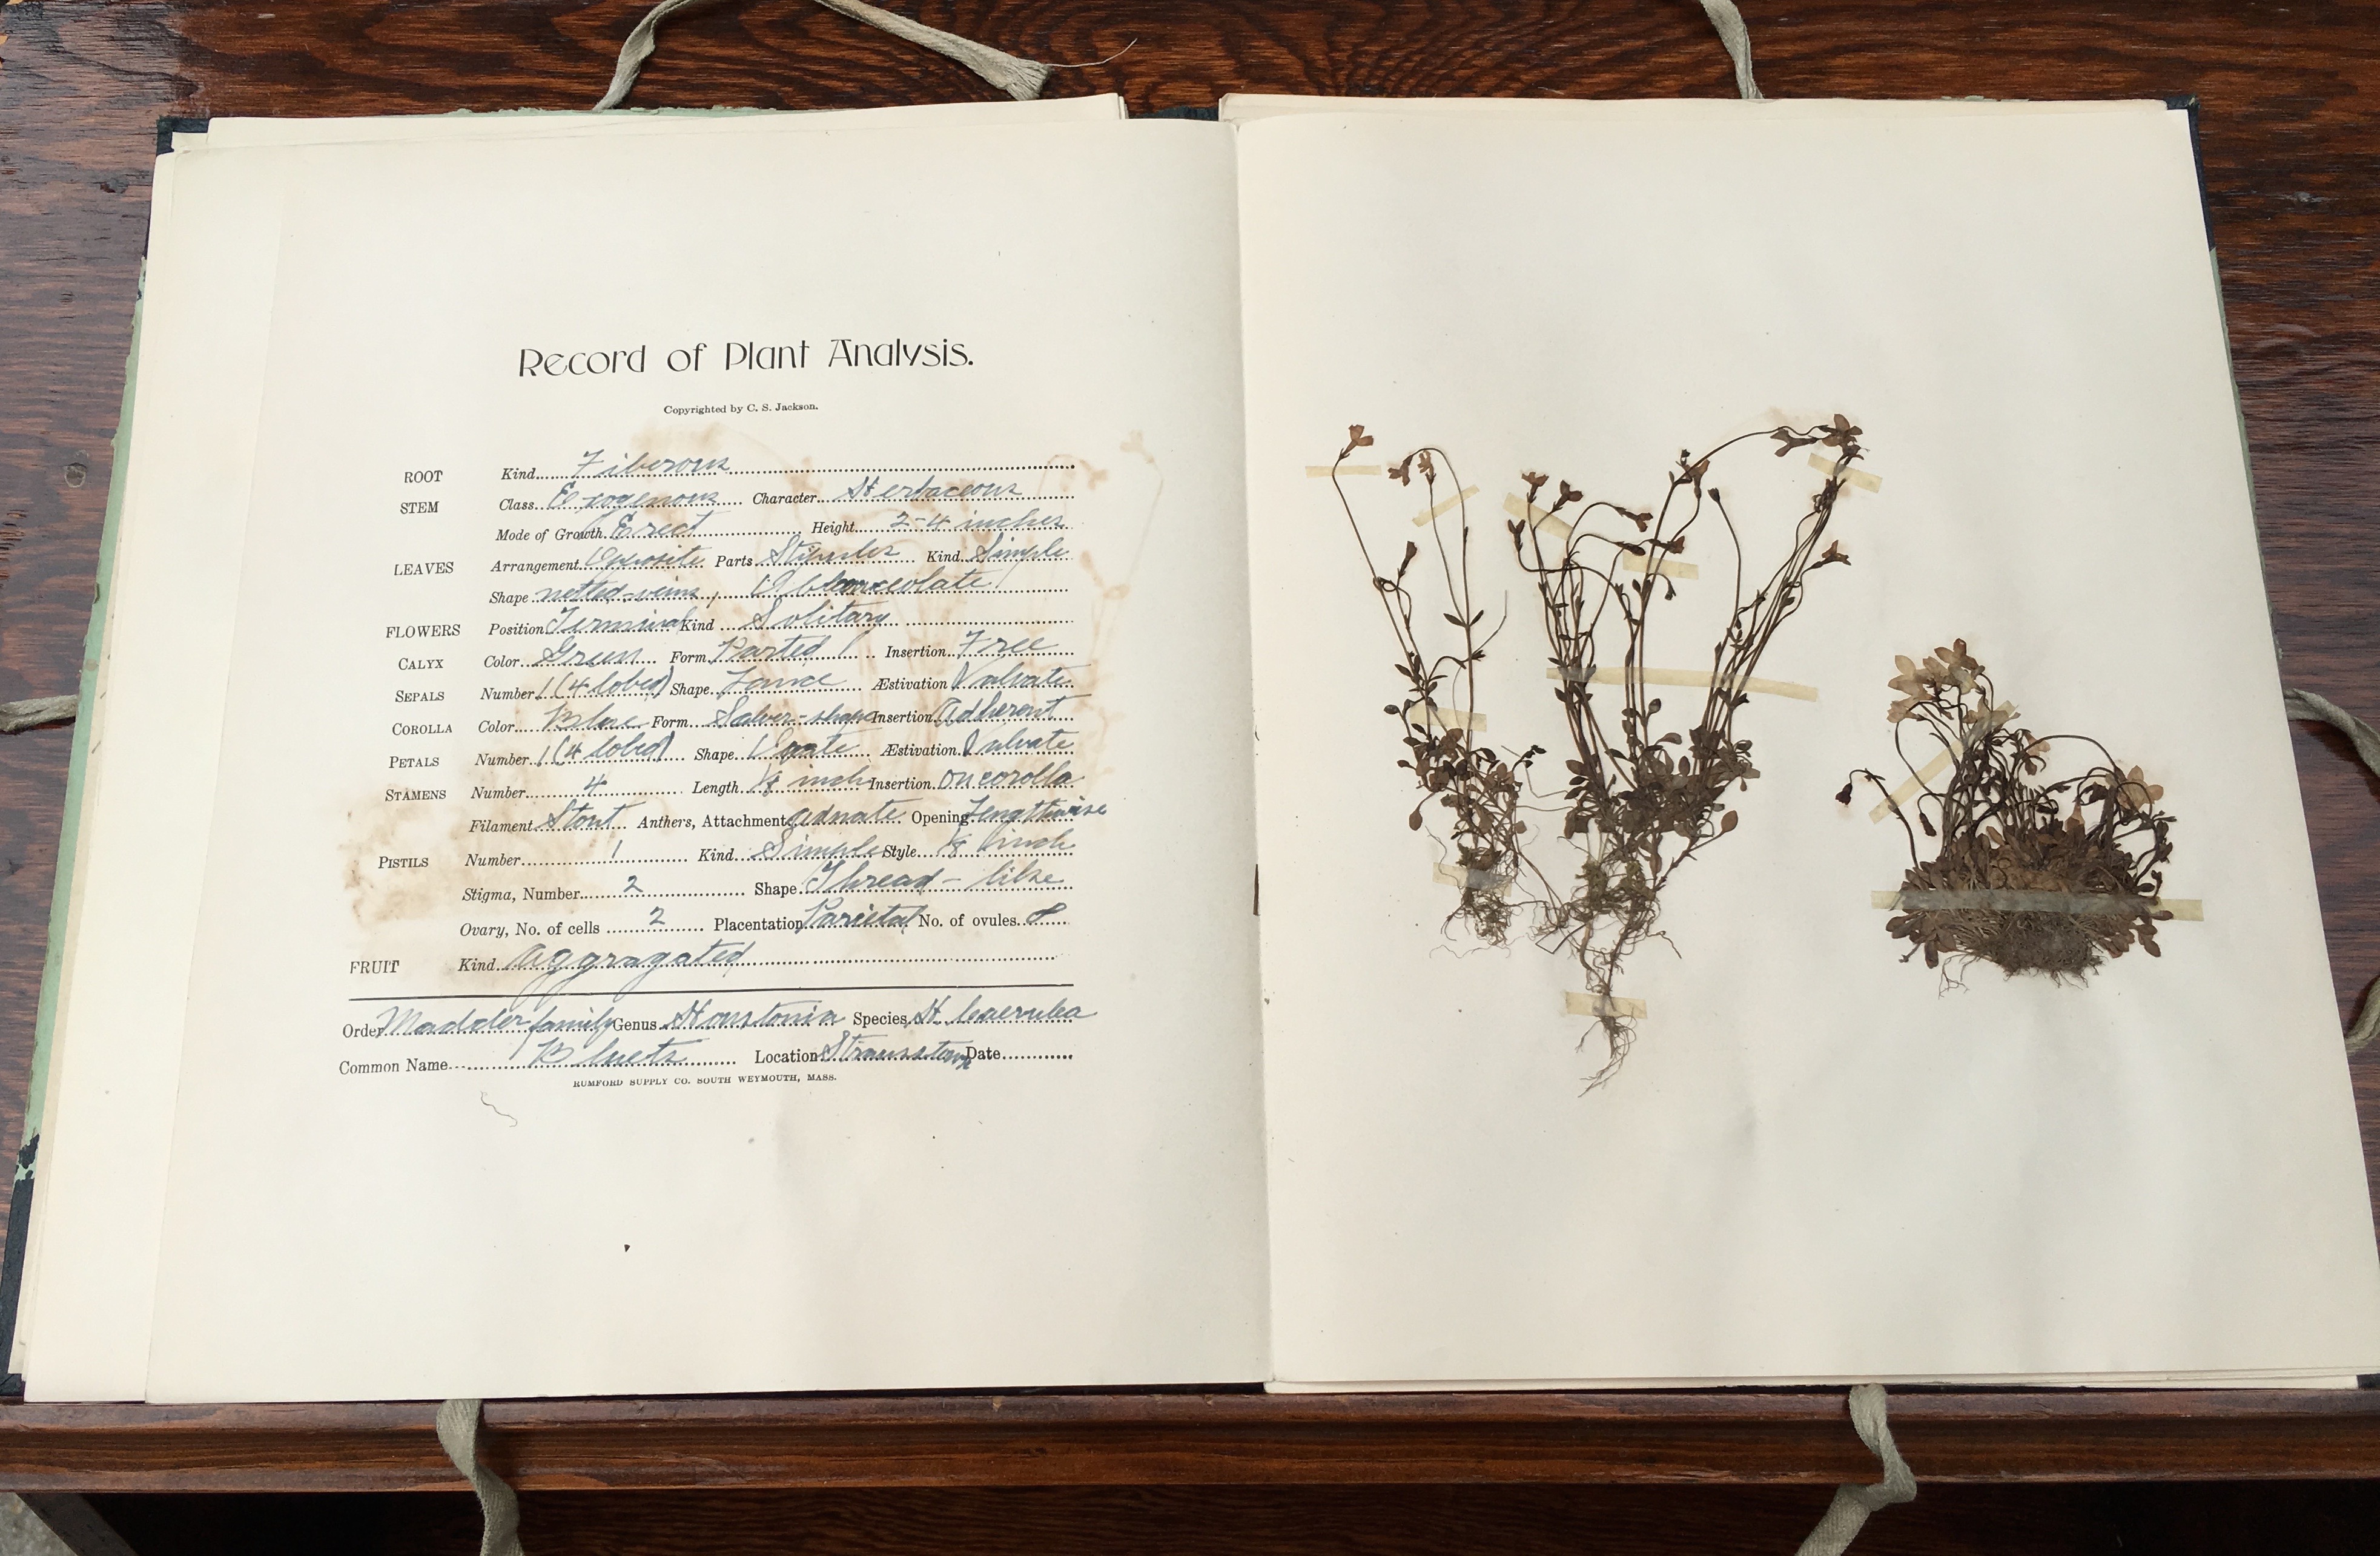 Record of Plant Analysis.
Copyrighted by C. S. Jackson.
ROOT Kind Fiberous
STEM Class Exogenous Character Herbaceous
Mode of Growth Erect Height 2-4 inches
LEAVES Arrangement Opposite Parts Stipules Kind Simple
Shape netted-veins, Oblanceolate
FLOWERS Position Terminal Kind Solitary
CALYX Color Green Form Parted Insertion Free
SEPALS Number 1 (4 lobed) Shape Lance Æstivation Valvate
COROLLA Color Blue Form Salver-shape Insertion Adherent
PETALS Number 1 (4 lobed) Shape Ovate Æstivation Valvate
STAMENS Number 4 Length 1/8 inch Insertion on corolla
Filament Stout Anthers, Attachment adnate Opening Lengthwise
PISTILS Number 1 Kind Simple Style 1/8 inch
Stigma, Number 2 Shape Thread-like
Ovary, No. of cells 2 Placentation Parietal No. of ovules
FRUIT Kind Aggragated
Order Madder family Genus Houstonia Species H. Caerulea
Common Name Bluets Location Strausstown Date
RUMFORD SUPPLY CO. SOUTH WEYMOUTH, MASS.